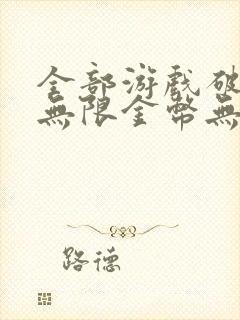 全部游戲破
無限金幣無
路德